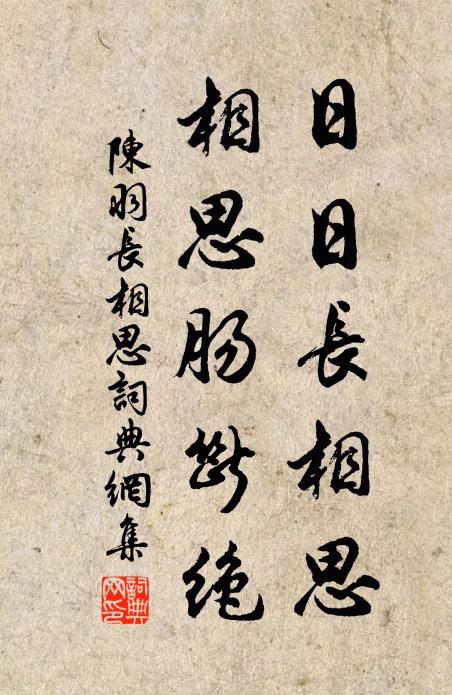 日日長相思
相思肠斷绝
陳羽長相思詞典網集
詞典
网印